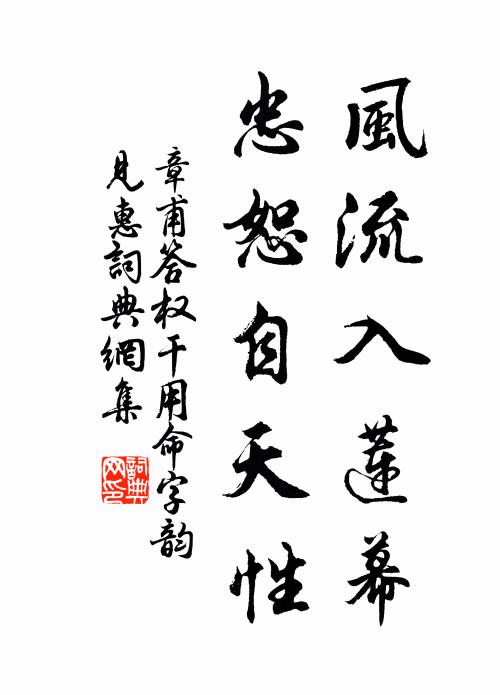 風流入蓮幕
忠恕自天性
章甫答权干用命字韵
見惠詞典網集
詞典
网印